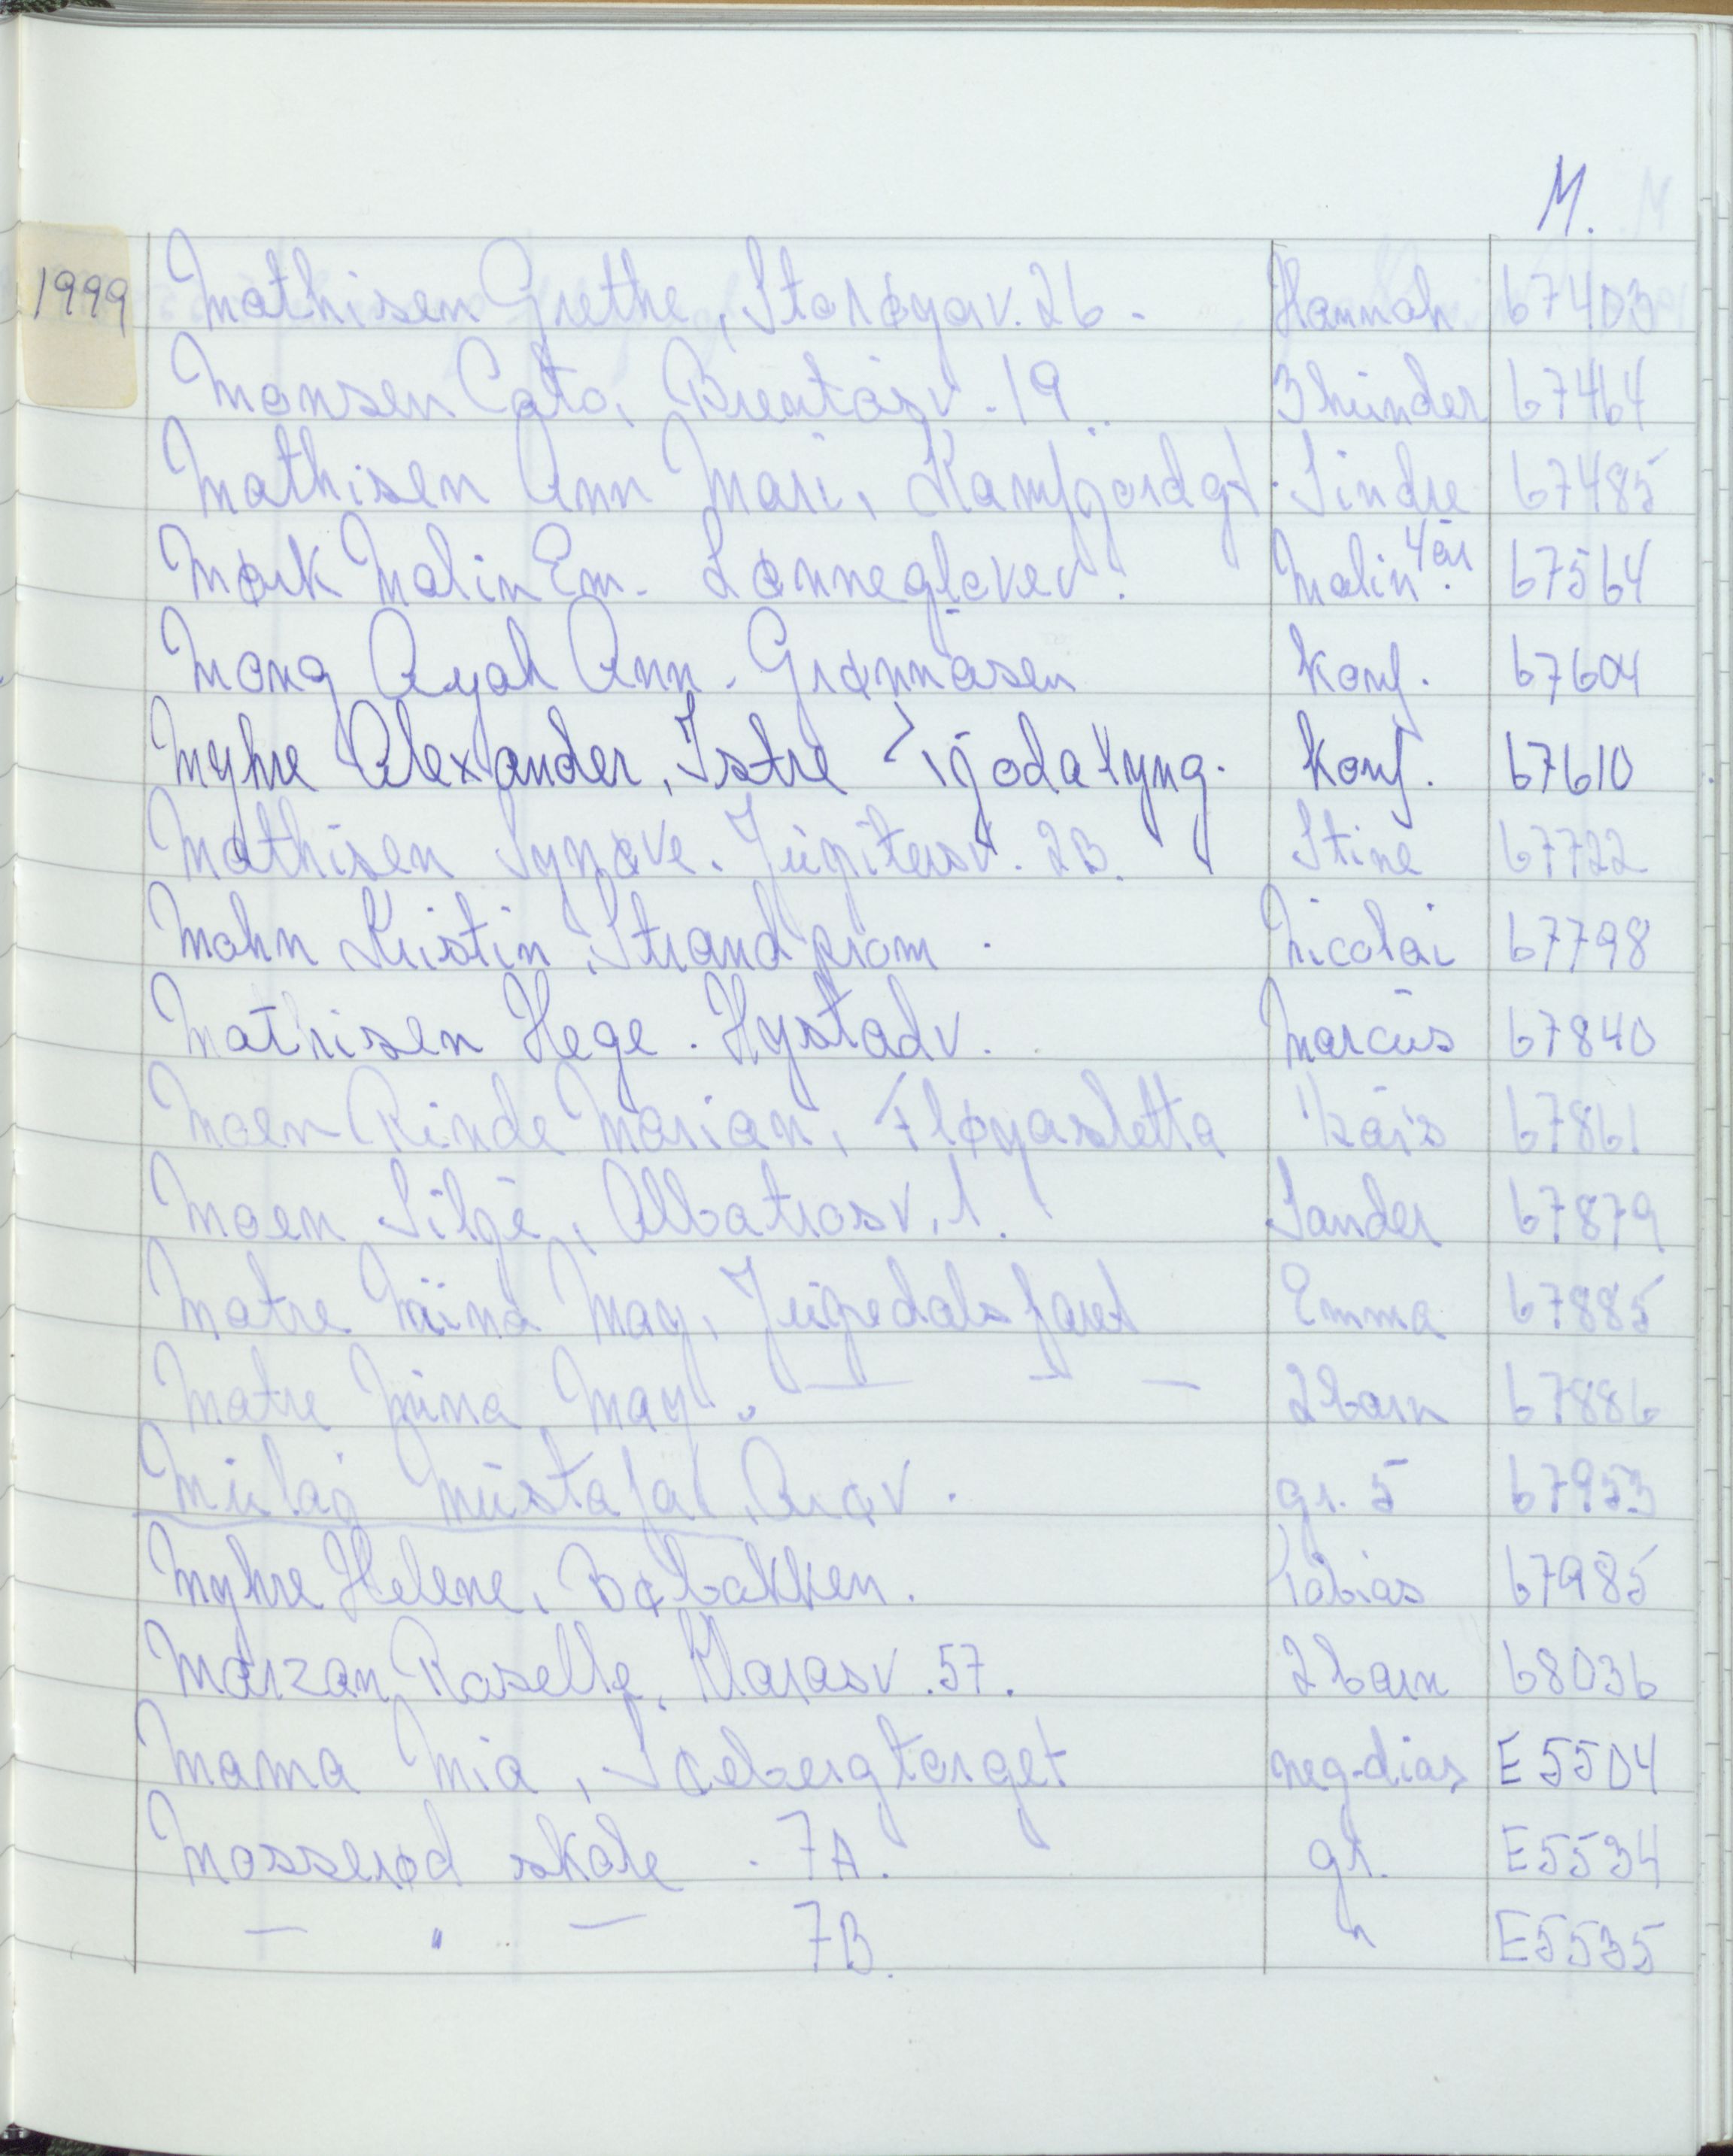 M.
1999 Mathisen Grethe, Storøyav. 26. Hannah 67403
Monsen Cato, Brentåsv. 19. 3 hunder 67464
Mathisen Ann Mari, Kamfjordgt. Sindre 67485
Mørk Malin Em. Lønnegløvev. Malin 4 år. 67564
Mong Ayah Ann. Grønnåsen Konf. 67604
Myhre Alexander, Istre Fjodalyng. Konf. 67610
Mathisen Synøve. Jupitersv. 2B. Stine 67722
Mohn Kristin, Strandprom. Nicolai 67798
Mathisen Hege. Hystadv. Marcus 67840
Moen Rinde Marian, Fløyasletta 1/2 års 67861
Moen Silje, Albatrosv. 1. Sander 67879
Matre Nina May, Jupedalsfaret Emma 67885
Matre Nina May. — — — 2 barn 67886
Mulaj Mustafa, Brøv. gr. 5 67953
Myhre Helene, Bøbakken. Tobias 67985
Marzan Roselle, Klarasv. 57. 2 barn 68036
Mama Mia, Soebergtorget neg-dias E 5504
Mosserød skole. 7A. gr. E5534
— " — 7B. " E5535